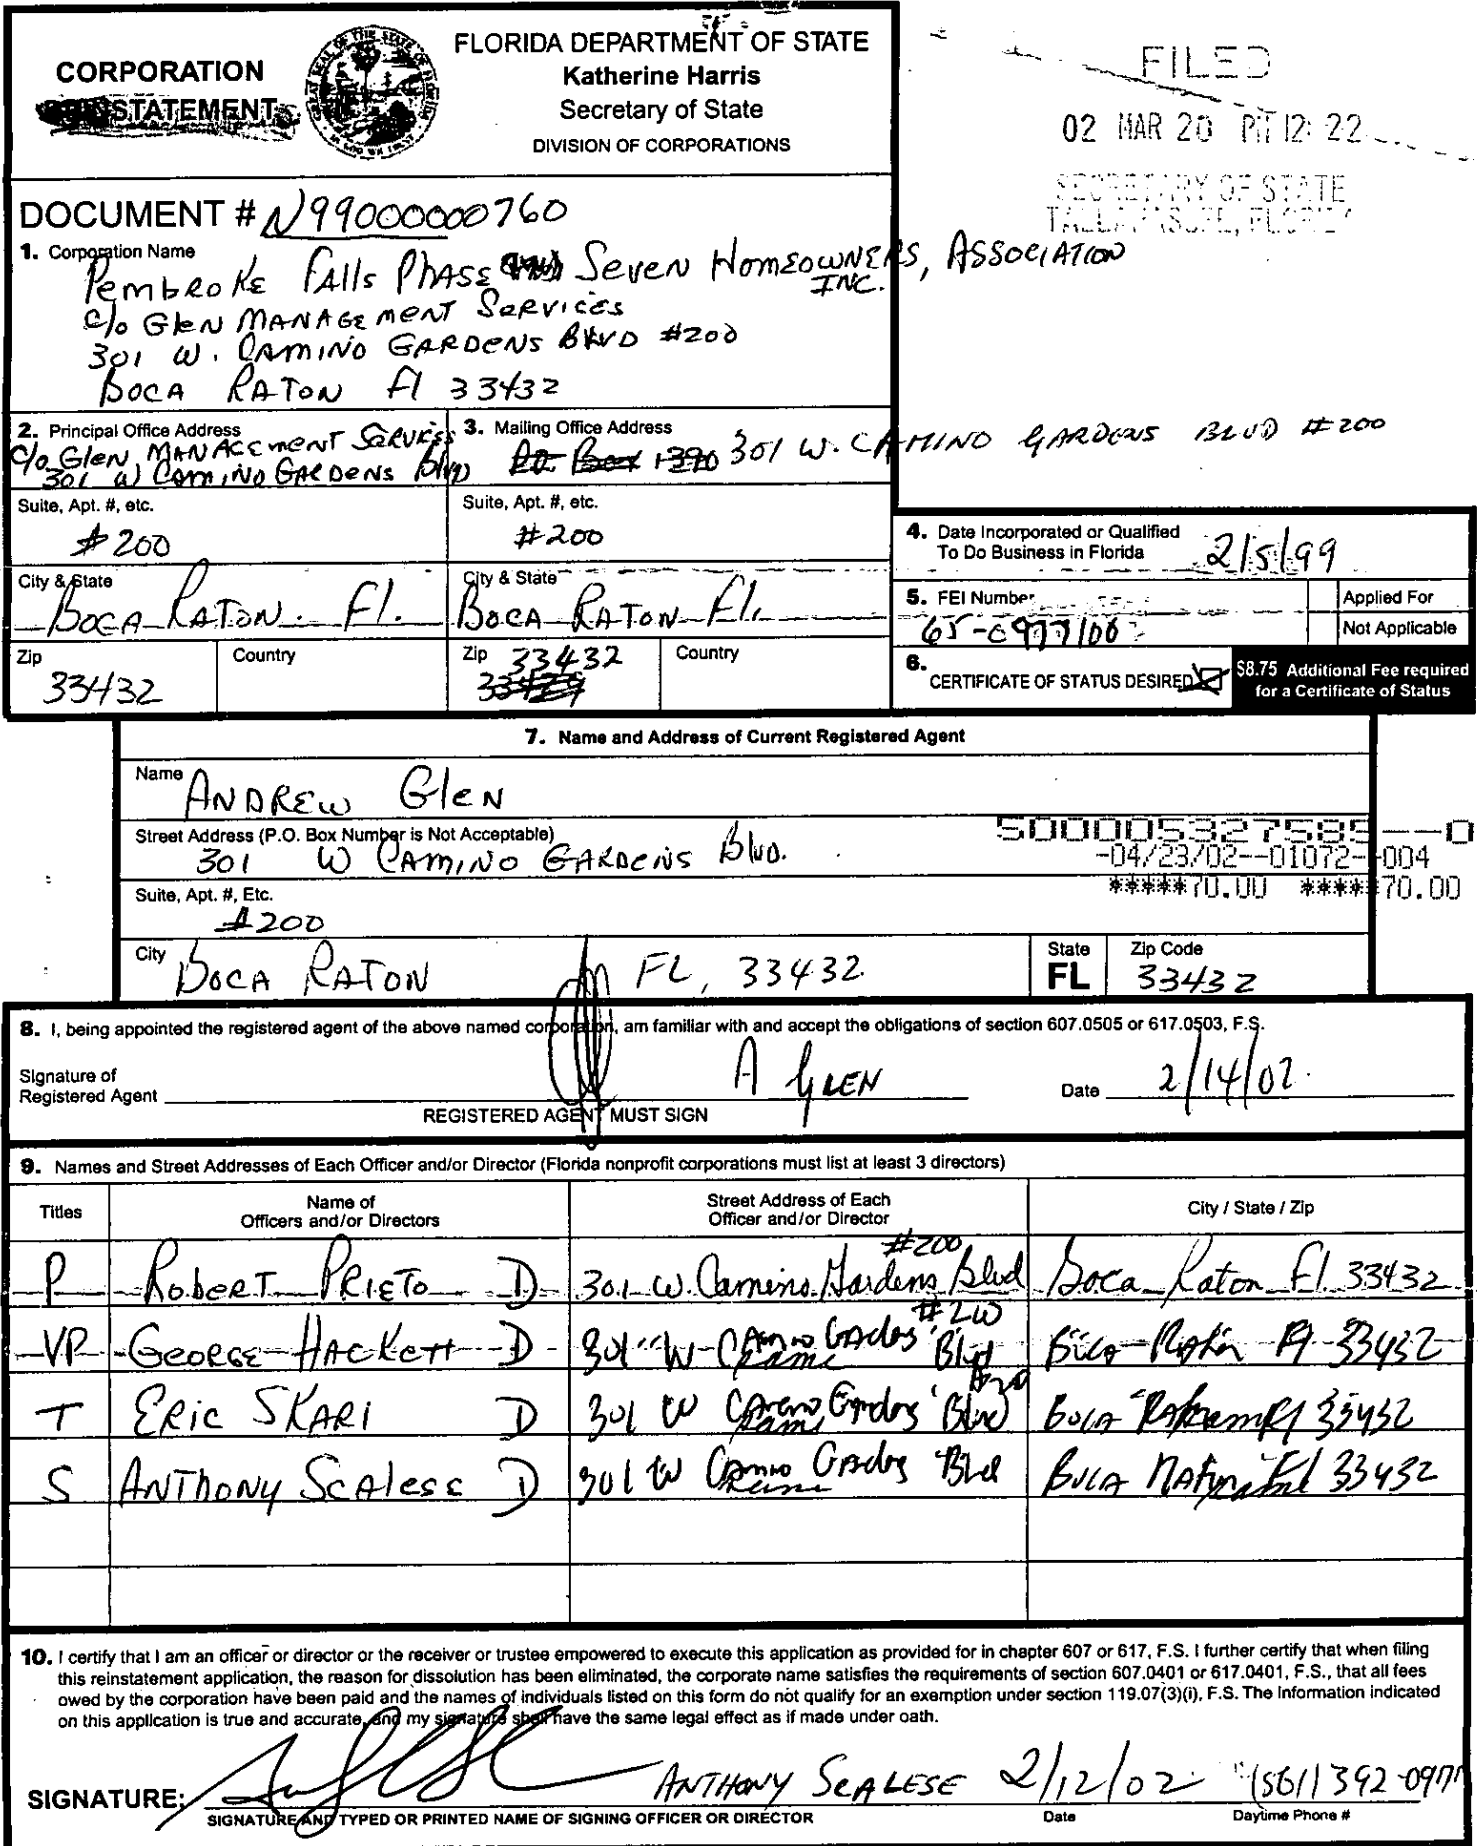 CORPORATION
STATEMENT
FLORIDA DEPARTMENT OF STATE
Katherine Harris
Secretary of State
DIVISION OF CORPORATIONS
FILED
02 MAR 20 PM 12: 22
SECRETARY OF STATE
TALLAHASSEE, FLORIDA
DOCUMENT # N99000000760
1. Corporation Name
Pembroke Falls Phase Seven Homeowners, Association
INC.
c/o Glen Management Services
301 W. Camino Gardens Blvd #200
Boca Raton Fl 33432
2. Principal Office Address
c/o Glen Management Services
301 W Camino Gardens Blvd
3. Mailing Office Address
P.O. Box 1390 301 W. Camino Gardens Blvd #200
Suite, Apt. #, etc.
#200
Suite, Apt. #, etc.
#200
City & State
Boca Raton. Fl.
City & State
Boca Raton Fl.
Zip
33432
Country
Zip
33432
Country
4. Date Incorporated or Qualified
To Do Business in Florida
2/5/99
5. FEI Number
65-0977100
Applied For
Not Applicable
6. CERTIFICATE OF STATUS DESIRED
$8.75 Additional Fee required
for a Certificate of Status
7. Name and Address of Current Registered Agent
Name
Andrew Glen
Street Address (P.O. Box Number is Not Acceptable)
301 W Camino Gardens Blvd.
500005327585--0
-04/23/02--01072--004
*****70.00 *****70.00
Suite, Apt. #, Etc.
#200
City
Boca Raton FL, 33432
State
FL
Zip Code
33432
8. I, being appointed the registered agent of the above named corporation, am familiar with and accept the obligations of section 607.0505 or 617.0503, F.S.
Signature of
Registered Agent
A Glen
Date 2/14/02
REGISTERED AGENT MUST SIGN
9. Names and Street Addresses of Each Officer and/or Director (Florida nonprofit corporations must list at least 3 directors)
Titles
Name of
Officers and/or Directors
Street Address of Each
Officer and/or Director
City / State / Zip
P Robert Prieto D 301 W. Camino Gardens Blvd #200 Boca Raton Fl 33432
VP George Hackett D 301 W Camino Gardens Blvd #200 Boca Raton Fl 33432
T Eric Skari D 301 W Camino Gardens Blvd #200 Boca Raton Fl 33432
S Anthony Scalese D 301 W Camino Gardens Blvd Boca Raton Fl 33432
10. I certify that I am an officer or director or the receiver or trustee empowered to execute this application as provided for in chapter 607 or 617, F.S. I further certify that when filing
this reinstatement application, the reason for dissolution has been eliminated, the corporate name satisfies the requirements of section 607.0401 or 617.0401, F.S., that all fees
owed by the corporation have been paid and the names of individuals listed on this form do not qualify for an exemption under section 119.07(3)(i), F.S. The information indicated
on this application is true and accurate, and my signature shall have the same legal effect as if made under oath.
SIGNATURE:
Anthony Scalese 2/12/02 (561) 392-0977
SIGNATURE AND TYPED OR PRINTED NAME OF SIGNING OFFICER OR DIRECTOR
Date
Daytime Phone #